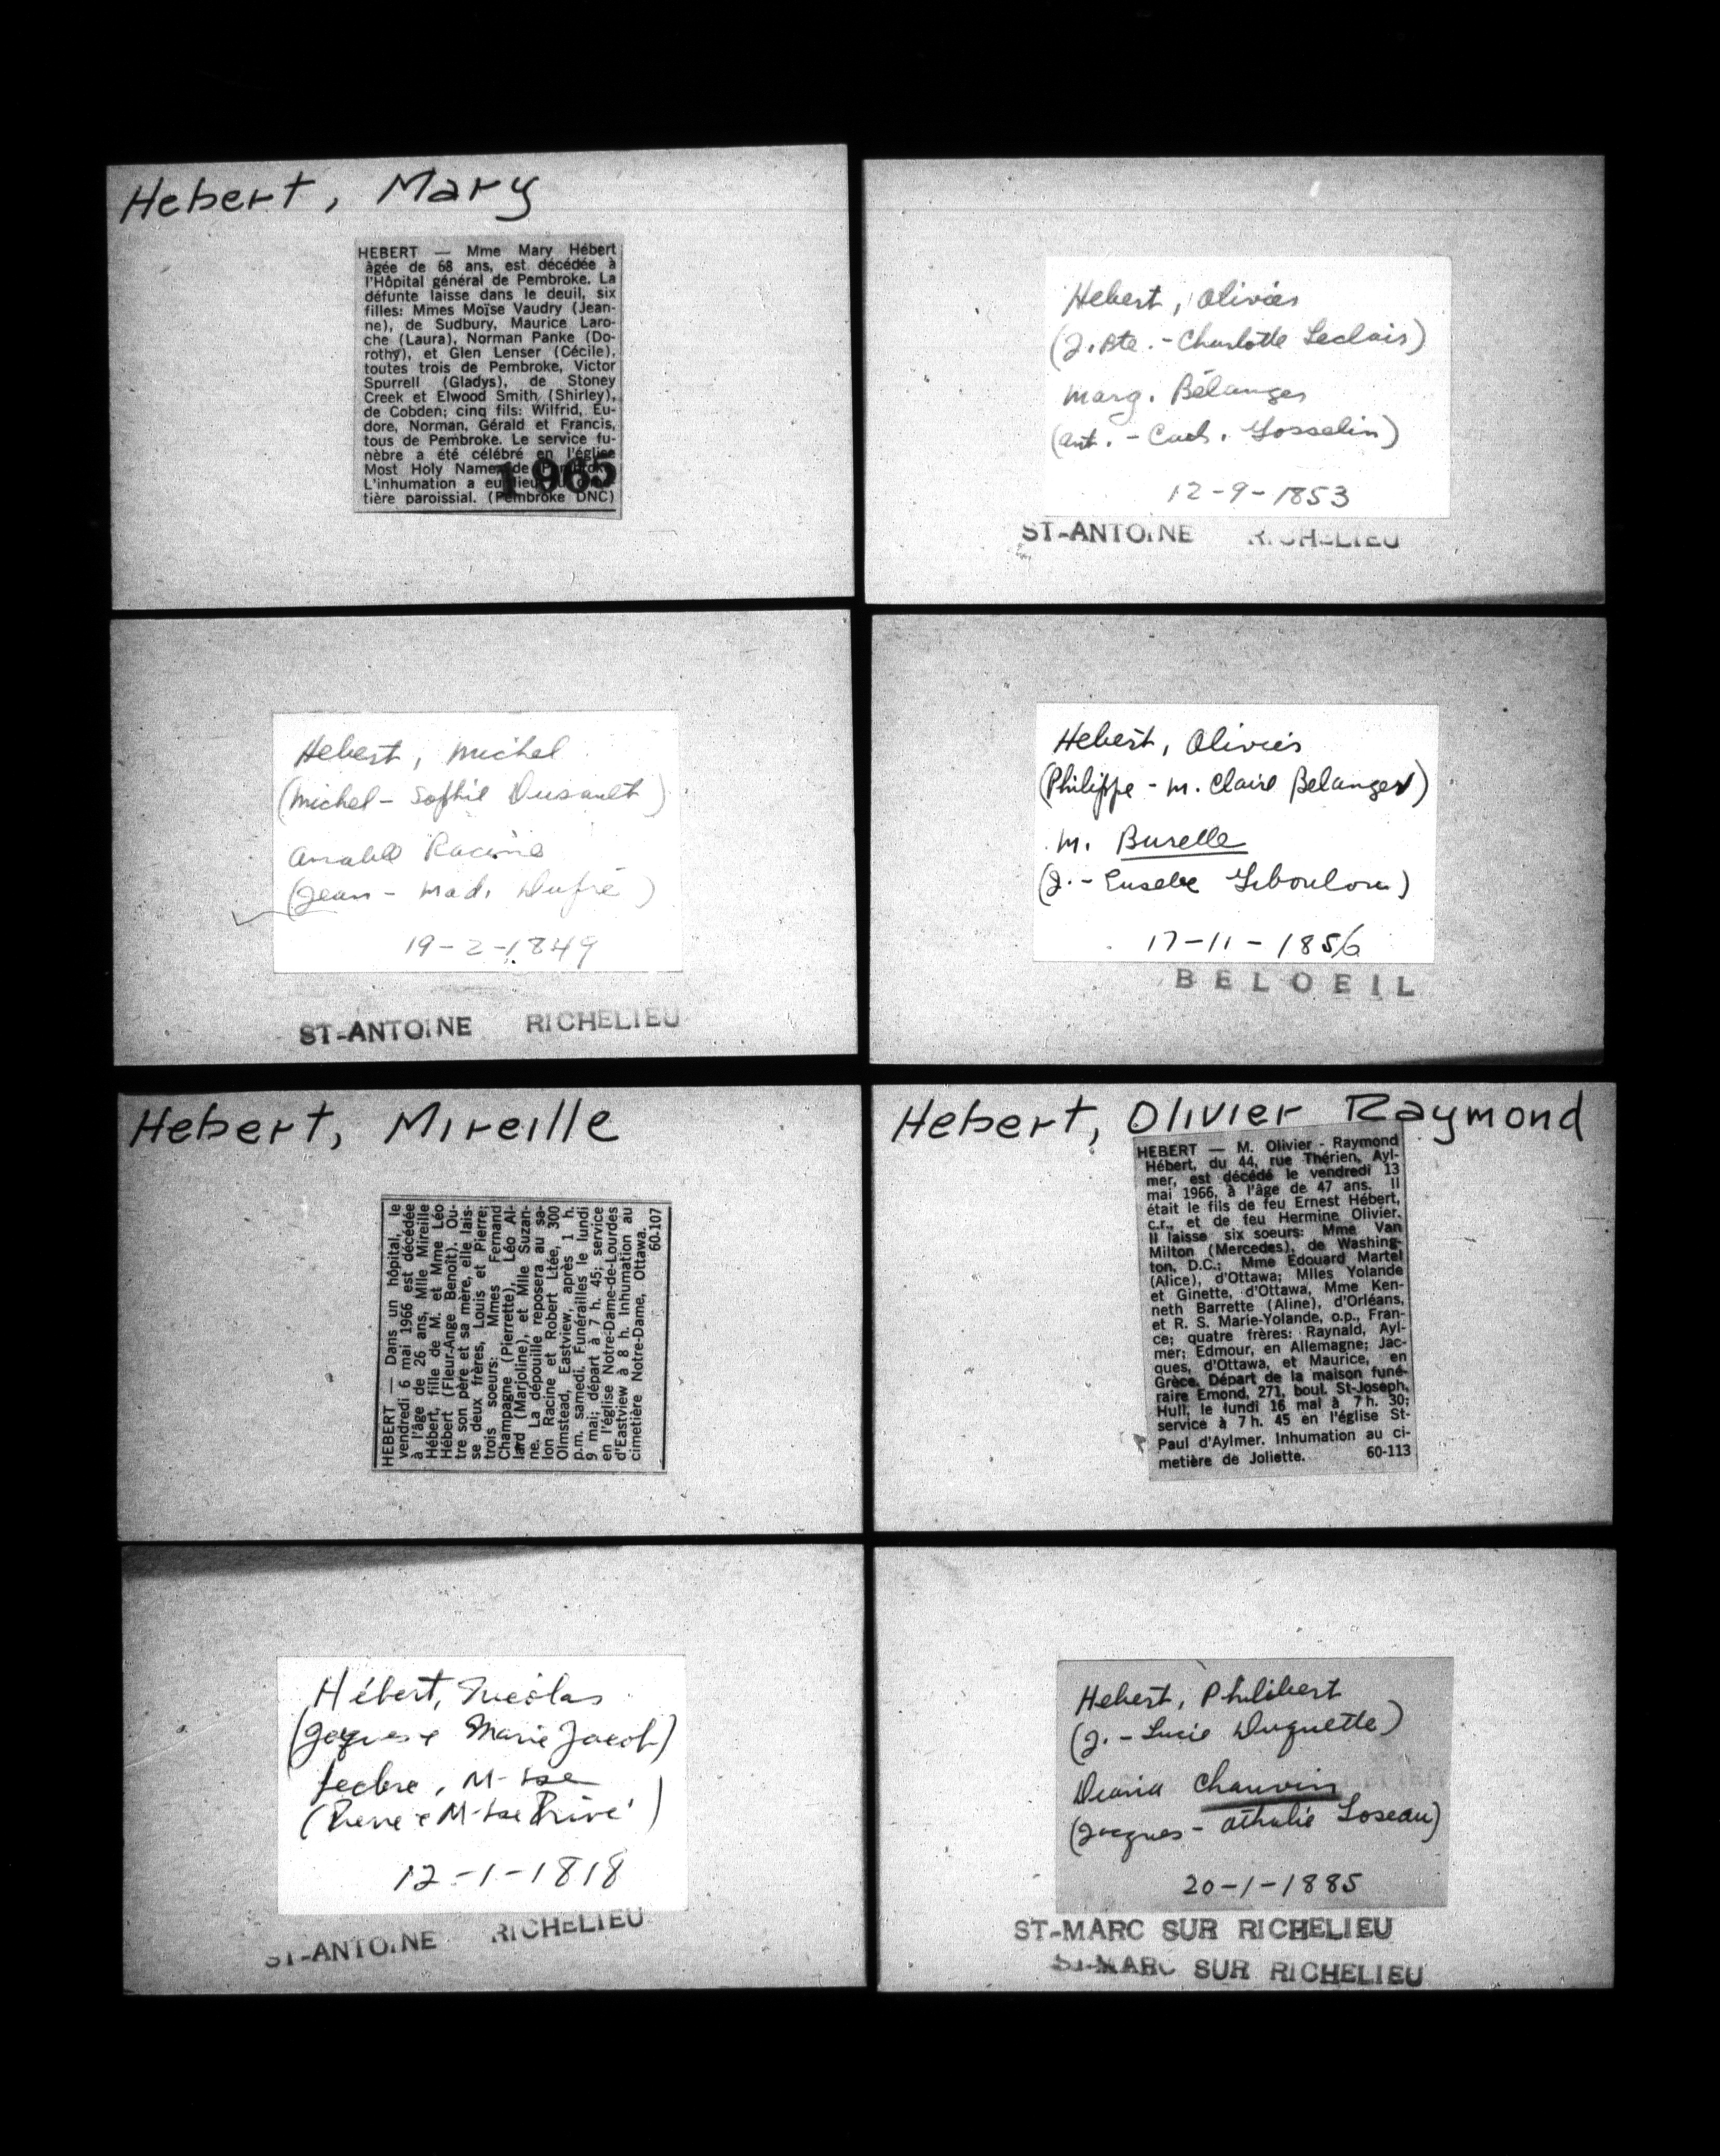 Hebert, Mary
HEBERT — Mme Mary Hébert
âgée de 68 ans, est décédée à
l'Hôpital général de Pembroke. La
défunte laisse dans le deuil, six
filles: Mmes Moïse Vaudry (Jean-
ne), de Sudbury, Maurice Laro-
che (Laura), Norman Panke (Do-
rothy), et Glen Lenser (Cécile),
toutes trois de Pembroke, Victor
Spurrell (Gladys), de Stoney
Creek et Elwood Smith (Shirley),
de Cobden; cinq fils: Wilfrid, Eu-
dore, Norman, Gérald et Francis,
tous de Pembroke. Le service fu-
nèbre a été célébré en l'église
Most Holy Name de Pembroke.
L'inhumation a eu lieu
tière paroissial. (Pembroke DNC)
1965
Hebert, Michel
(Michel - Sophie Dusault)
Racine
(Jean - Mad. Dufré)
19-2-1849
ST-ANTOINE RICHELIEU
Hebert, Mireille
HEBERT — Dans un hôpital, le
vendredi 6 mai 1966 est décédée
à l'âge de 26 ans, Mlle Mireille
Hébert, fille de M. et Mme Léo
Hébert (Fleur-Ange Benoit). Ou-
tre son père et sa mère, elle lais-
se deux frères, Louis et Pierre;
trois soeurs: Mmes Fernand
Champagne (Pierrette), Léo Al-
lard (Marjoline), et Mlle Suzan-
ne. La dépouille reposera au sa-
lon Racine et Robert Ltée, 300
Olmstead, Eastview, après 1 h.
p.m. samedi. Funérailles le lundi
9 mai; départ à 7 h. 45; service
en l'église Notre-Dame-de-Lourdes
d'Eastview à 8 h. Inhumation au
cimetière Notre-Dame, Ottawa.
60-107
Hébert, Nicolas
(Jacques & Marie Jacob)
M-Tse
(Pierre & M-Tse Privé)
12-1-1818
ST-ANTOINE RICHELIEU
Hebert, Olivier
(J. Bte. - Charlotte Leclair)
Marg. Bélanger
(Ant. - Cath. Gosselin)
12-9-1853
ST-ANTOINE RICHELIEU
Hebert, Olivier
(Philippe - M. Claire Belanger)
M. Burelle
(J. - Eusebe)
17-11-1856
BELOEIL
Hebert, Olivier Raymond
HEBERT — M. Olivier - Raymond
Hébert, du 44, rue Thérien, Ayl-
mer, est décédé le vendredi 13
mai 1966, à l'âge de 47 ans. Il
était le fils de feu Ernest Hébert,
c.r., et de feu Hermine Olivier.
Il laisse six soeurs: Mme Van
Milton (Mercedes), de Washing-
ton, D.C.; Mme Edouard Martel
(Alice), d'Ottawa; Mlles Yolande
et Ginette, d'Ottawa, Mme Ken-
neth Barrette (Aline), d'Orléans,
et R. S. Marie-Yolande, o.p., Fran-
ce; quatre frères: Raynald, Ayl-
mer; Edmour, en Allemagne; Jac-
ques, d'Ottawa, et Maurice, en
Grèce. Départ de la maison funé-
raire Emond, 271, boul. St-Joseph,
Hull, le lundi 16 mai à 7 h. 30;
service à 7 h. 45 en l'église St-
Paul d'Aylmer. Inhumation au ci-
metière de Joliette. 60-113
Hebert, Philibert
(J. - Lucie Duquette)
Chauvin
(Jacques - Athalie Loseau)
20-1-1885
ST-MARC SUR RICHELIEU
ST-MARC SUR RICHELIEU